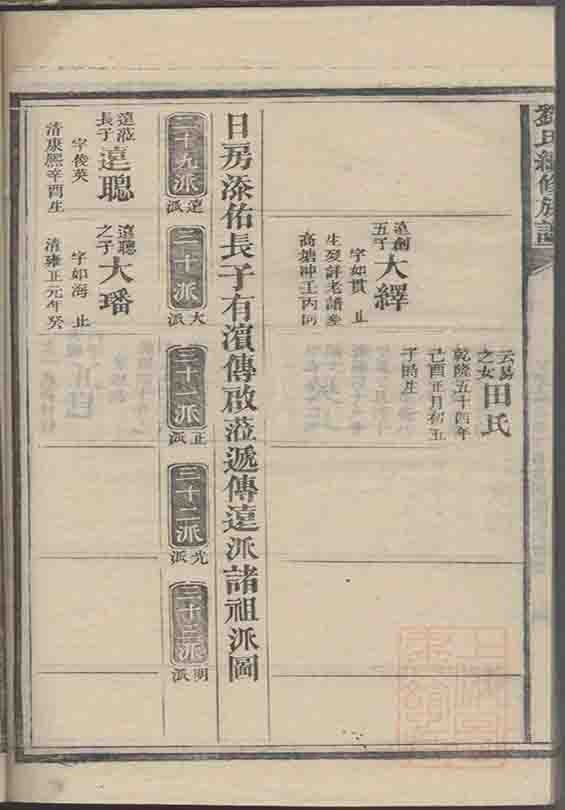 劉氏續修族譜
云易
之女
田氏
乾隆五十四年
己酉正月初五
子時生
遠創
五子
大繹
字如貫 止
生歿詳老譜葬
高塘冲工丙向
日房添佑長子有濱傳啟蒞遞傳遠派諸祖派圖
二十九派
遠派
三十派
大派
三十一派
正派
三十二派
光派
三十三派
明派
遠蒞
長子
遠聰
字俊英
清康熙辛酉生
遠聰
之子
大璠
字如海 止
清雍正元年癸